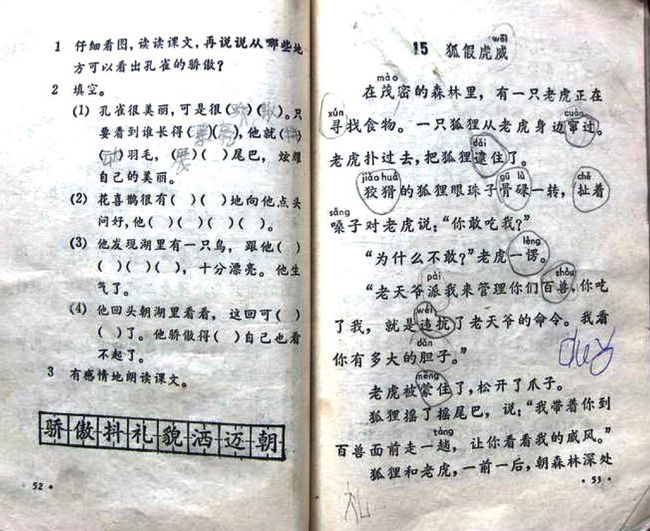 1 仔细看图，读读课文，再说说从哪些地
方可以看出孔雀的骄傲？
2 填空。
(1) 孔雀很美丽，可是很(骄)(傲)。只
要看到谁长得( )( )，他就(抖)
(动)羽毛，( )( )尾巴，炫耀
自己的美丽。
(2) 花喜鹊很有( )( )地向他点头
问好，他( )( )( )( )。
(3) 他发现湖里有一只鸟，跟他( )
( )( )( )，十分漂亮。他生
气了。
(4) 他回头朝湖里看看，这回可( )
( )了。他骄傲得( )自己也看
不起了。
3 有感情地朗读课文。
骄傲抖礼貌洒迈朝
·52·
wēi
15 狐假虎威
mào
在茂密的森林里，有一只老虎正在
xún cuàn
寻找食物。一只狐狸从老虎身边窜过。
dǎi
老虎扑过去，把狐狸逮住了。
jiǎo huá gū lù chě
狡猾的狐狸眼珠子骨碌一转，扯着
sǎng
嗓子对老虎说：“你敢吃我？”
lèng
“为什么不敢？”老虎一愣。
pài shòu
“老天爷派我来管理你们百兽，你吃
wéi
了我，就是违抗了老天爷的命令。我看
dǎn
你有多大的胆子。”
méng
老虎被蒙住了，松开了爪子。
狐狸摇了摇尾巴，说：“我带着你到
tàng
百兽面前走一趟，让你看看我的威风。”
狐狸和老虎，一前一后，朝森林深处
·53·